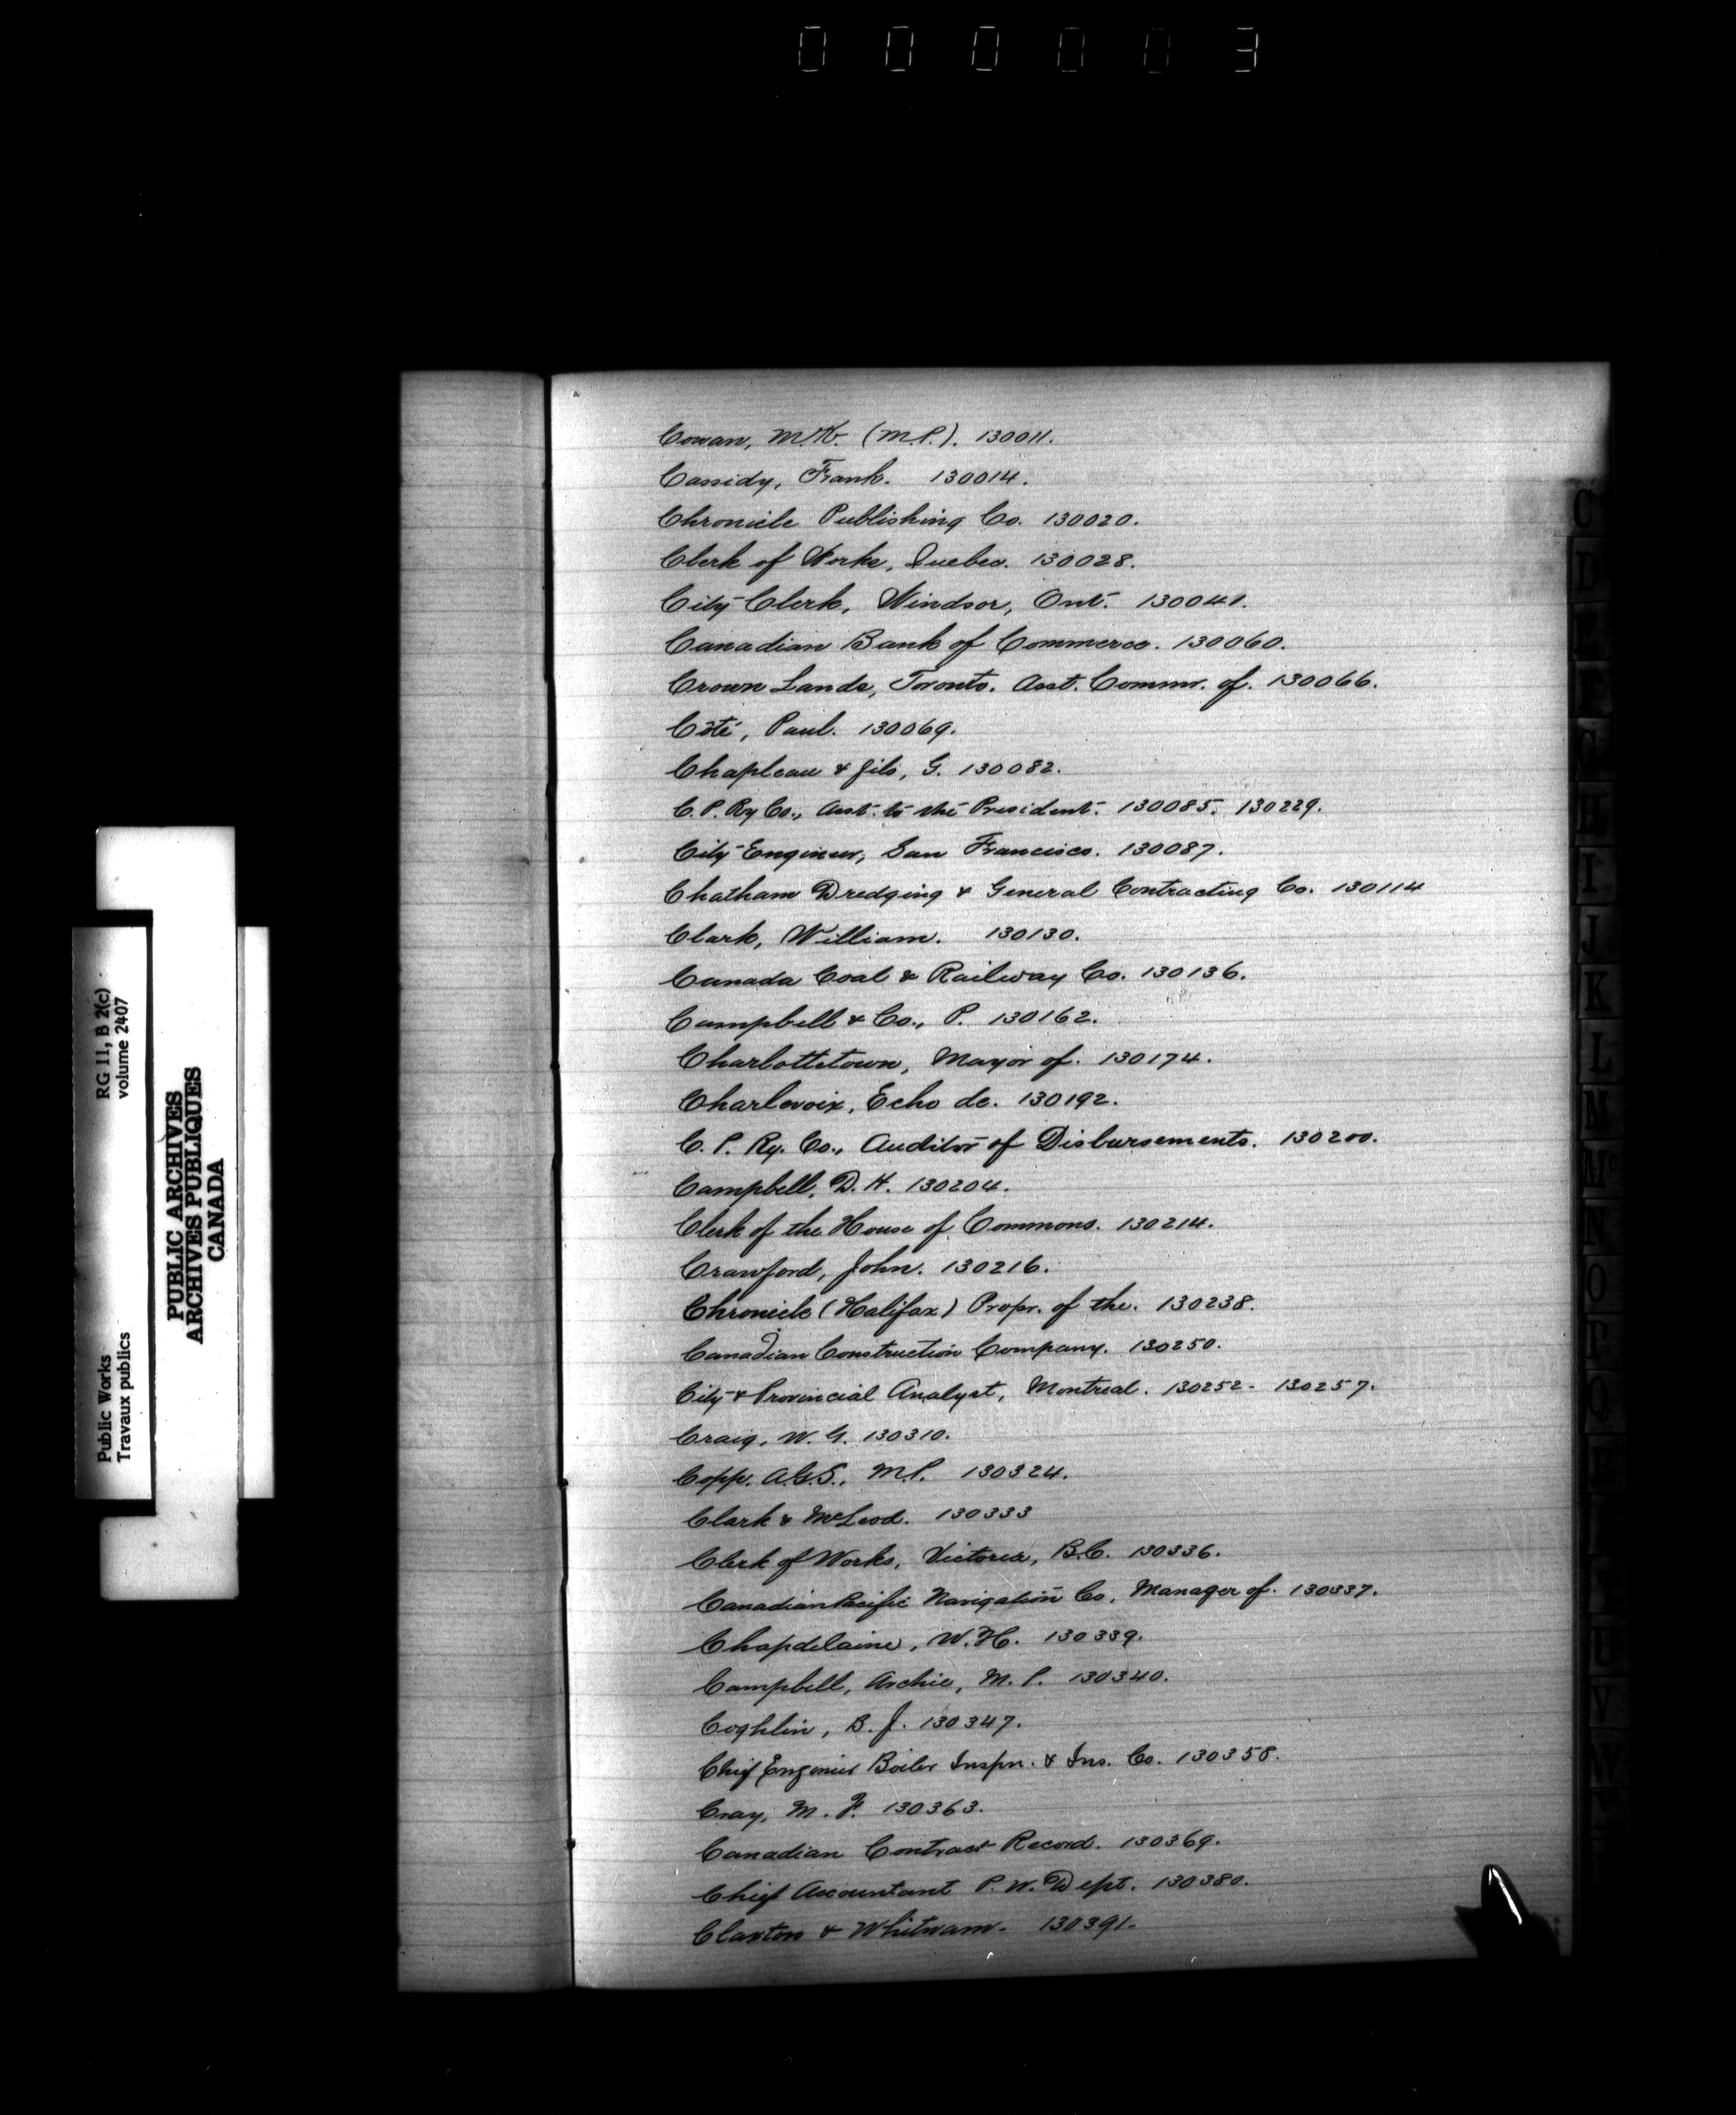 000003
Cowan, M.K. (M.P.). 130011.
Cassidy, Frank. 130014.
Chronicle Publishing Co. 130020.
Clerk of Works, Quebec. 130028.
City Clerk, Windsor, Ont. 130041.
Canadian Bank of Commerce. 130060.
Crown Lands, Toronto. Asst. Commr. of. 130066.
Côté, Paul. 130069.
Chapleau & fils, G. 130082.
C.P. Ry Co., Asst. to the President. 130085. 130229.
City Engineer, San Francisco. 130087.
Chatham Dredging & General Contracting Co. 130114
Clark, William. 130130.
Canada Coal & Railway Co. 130136.
Campbell & Co., P. 130162.
Charlottetown, Mayor of. 130174.
Charlevoix, Echo de. 130192.
C. P. Ry. Co., Auditor of Disbursements. 130200.
Campbell, D. H. 130204.
Clerk of the House of Commons. 130214.
Crawford, John. 130216.
Chronicle (Halifax) Propr. of the. 130238.
Canadian Construction Company. 130250.
City & Provincial Analyst, Montreal. 130252 - 130257.
Craig, W. G. 130310.
Copp. A.G.S., M.P. 130324.
Clark & McLeod. 130333
Clerk of Works, Victoria, B.C. 130336.
Canadian Pacific Navigation Co, Manager of. 130337.
Chapdelaine, W. H. 130339.
Campbell, Archie, M. P. 130340.
Coghlin, B. J. 130347.
Chief Engineer Boiler Inspn. & Ins. Co. 130358.
Cray, M. F. 130363.
Canadian Contract Record. 130369.
Chief Accountant P. W. Dept. 130380.
Claxton & Whitwam. 130391.
C
D
G
H
I
J
K
L
M
Mc
N
O
P
Q
R
U
V
W
Public Works RG 11, B 2(c)
Travaux publics volume 2407
PUBLIC ARCHIVES
ARCHIVES PUBLIQUES
CANADA